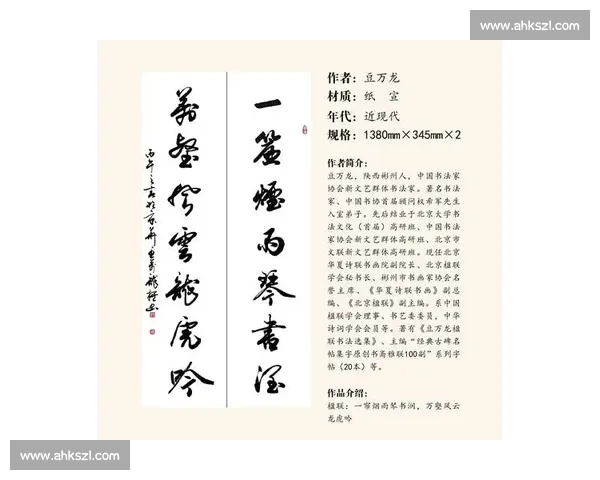 www.ahkszl.com
一簾煙雨琴書潤
萬壑風雲龍虎吟
作者：豆万龙
材质：纸 宣
年代：近现代
规格：1380mm×345mm×2
作者简介：
豆万龙，陕西彬州人，中国书法家
协会新文艺群体书法家。著名书法
家、中国书协首届顾问权希军先生
入室弟子。先后结业于北京大学书
法文化（首届）高研班、中国书法家
协会新文艺群体高研班、北京市
文联新文艺群体高研班。现任北京
华夏诗联书画院副院长、北京楹联
学会秘书长、彬州市书画家协会名
誉主席、《华夏诗联书画》副总
编、《北京楹联》副主编。系中国
楹联学会理事、书艺委委员，中华
诗词学会会员等。著有《豆万龙楹
联书法选集》、主编“经典古碑名
帖集字原创书斋雅联100副”系列字
帖（20本）等。
作品介绍：
楹联：一帘烟雨琴书润，万壑风云
龙虎吟
www.ahkszl.com